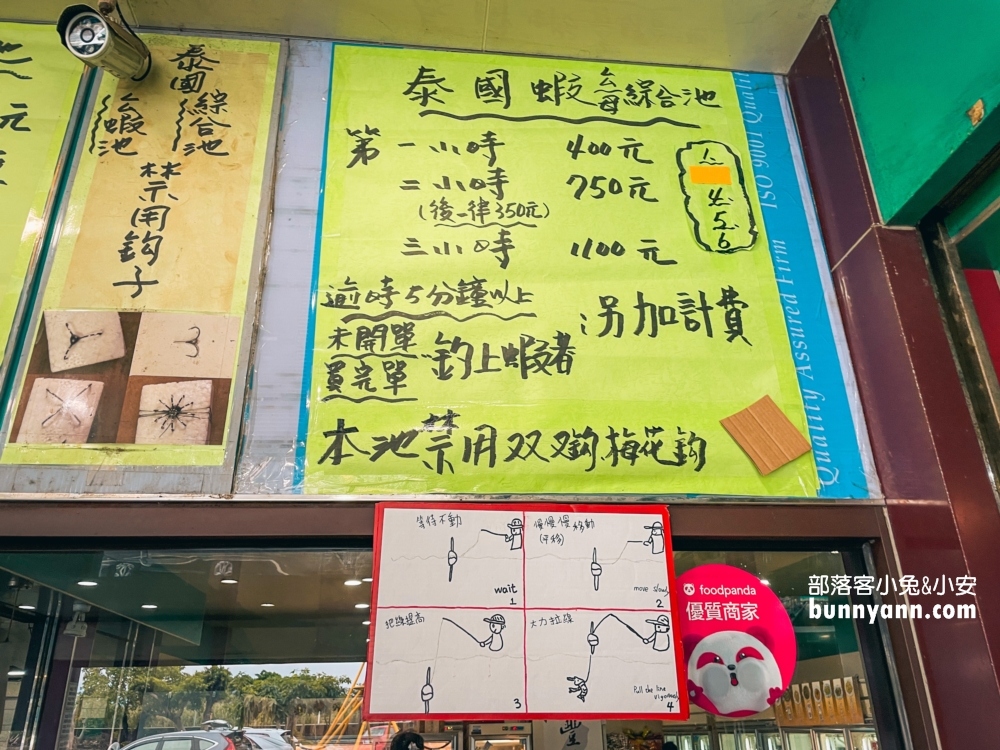 元
泰國綜合池
公蝦池
禁用鈎子
泰國蝦公母綜合池
第一小時 400元
二小時 750元
(後一律350元)
三小時 1100元
1.
4.
5.
6
逾時5分鐘以上
未開單
買完單
釣上蝦者
另加計費
本池禁用双叉鈎,梅花鈎
ISO 9001 Quality
Quality Assured Firm
等待不動
wait
1
慢慢慢移動
(平移)
move slowly
2
把線提高
3
大力拉線
Pull the line
vigorously
4
foodpanda
優質商家
部落客小兔&小安
bunnyann.com